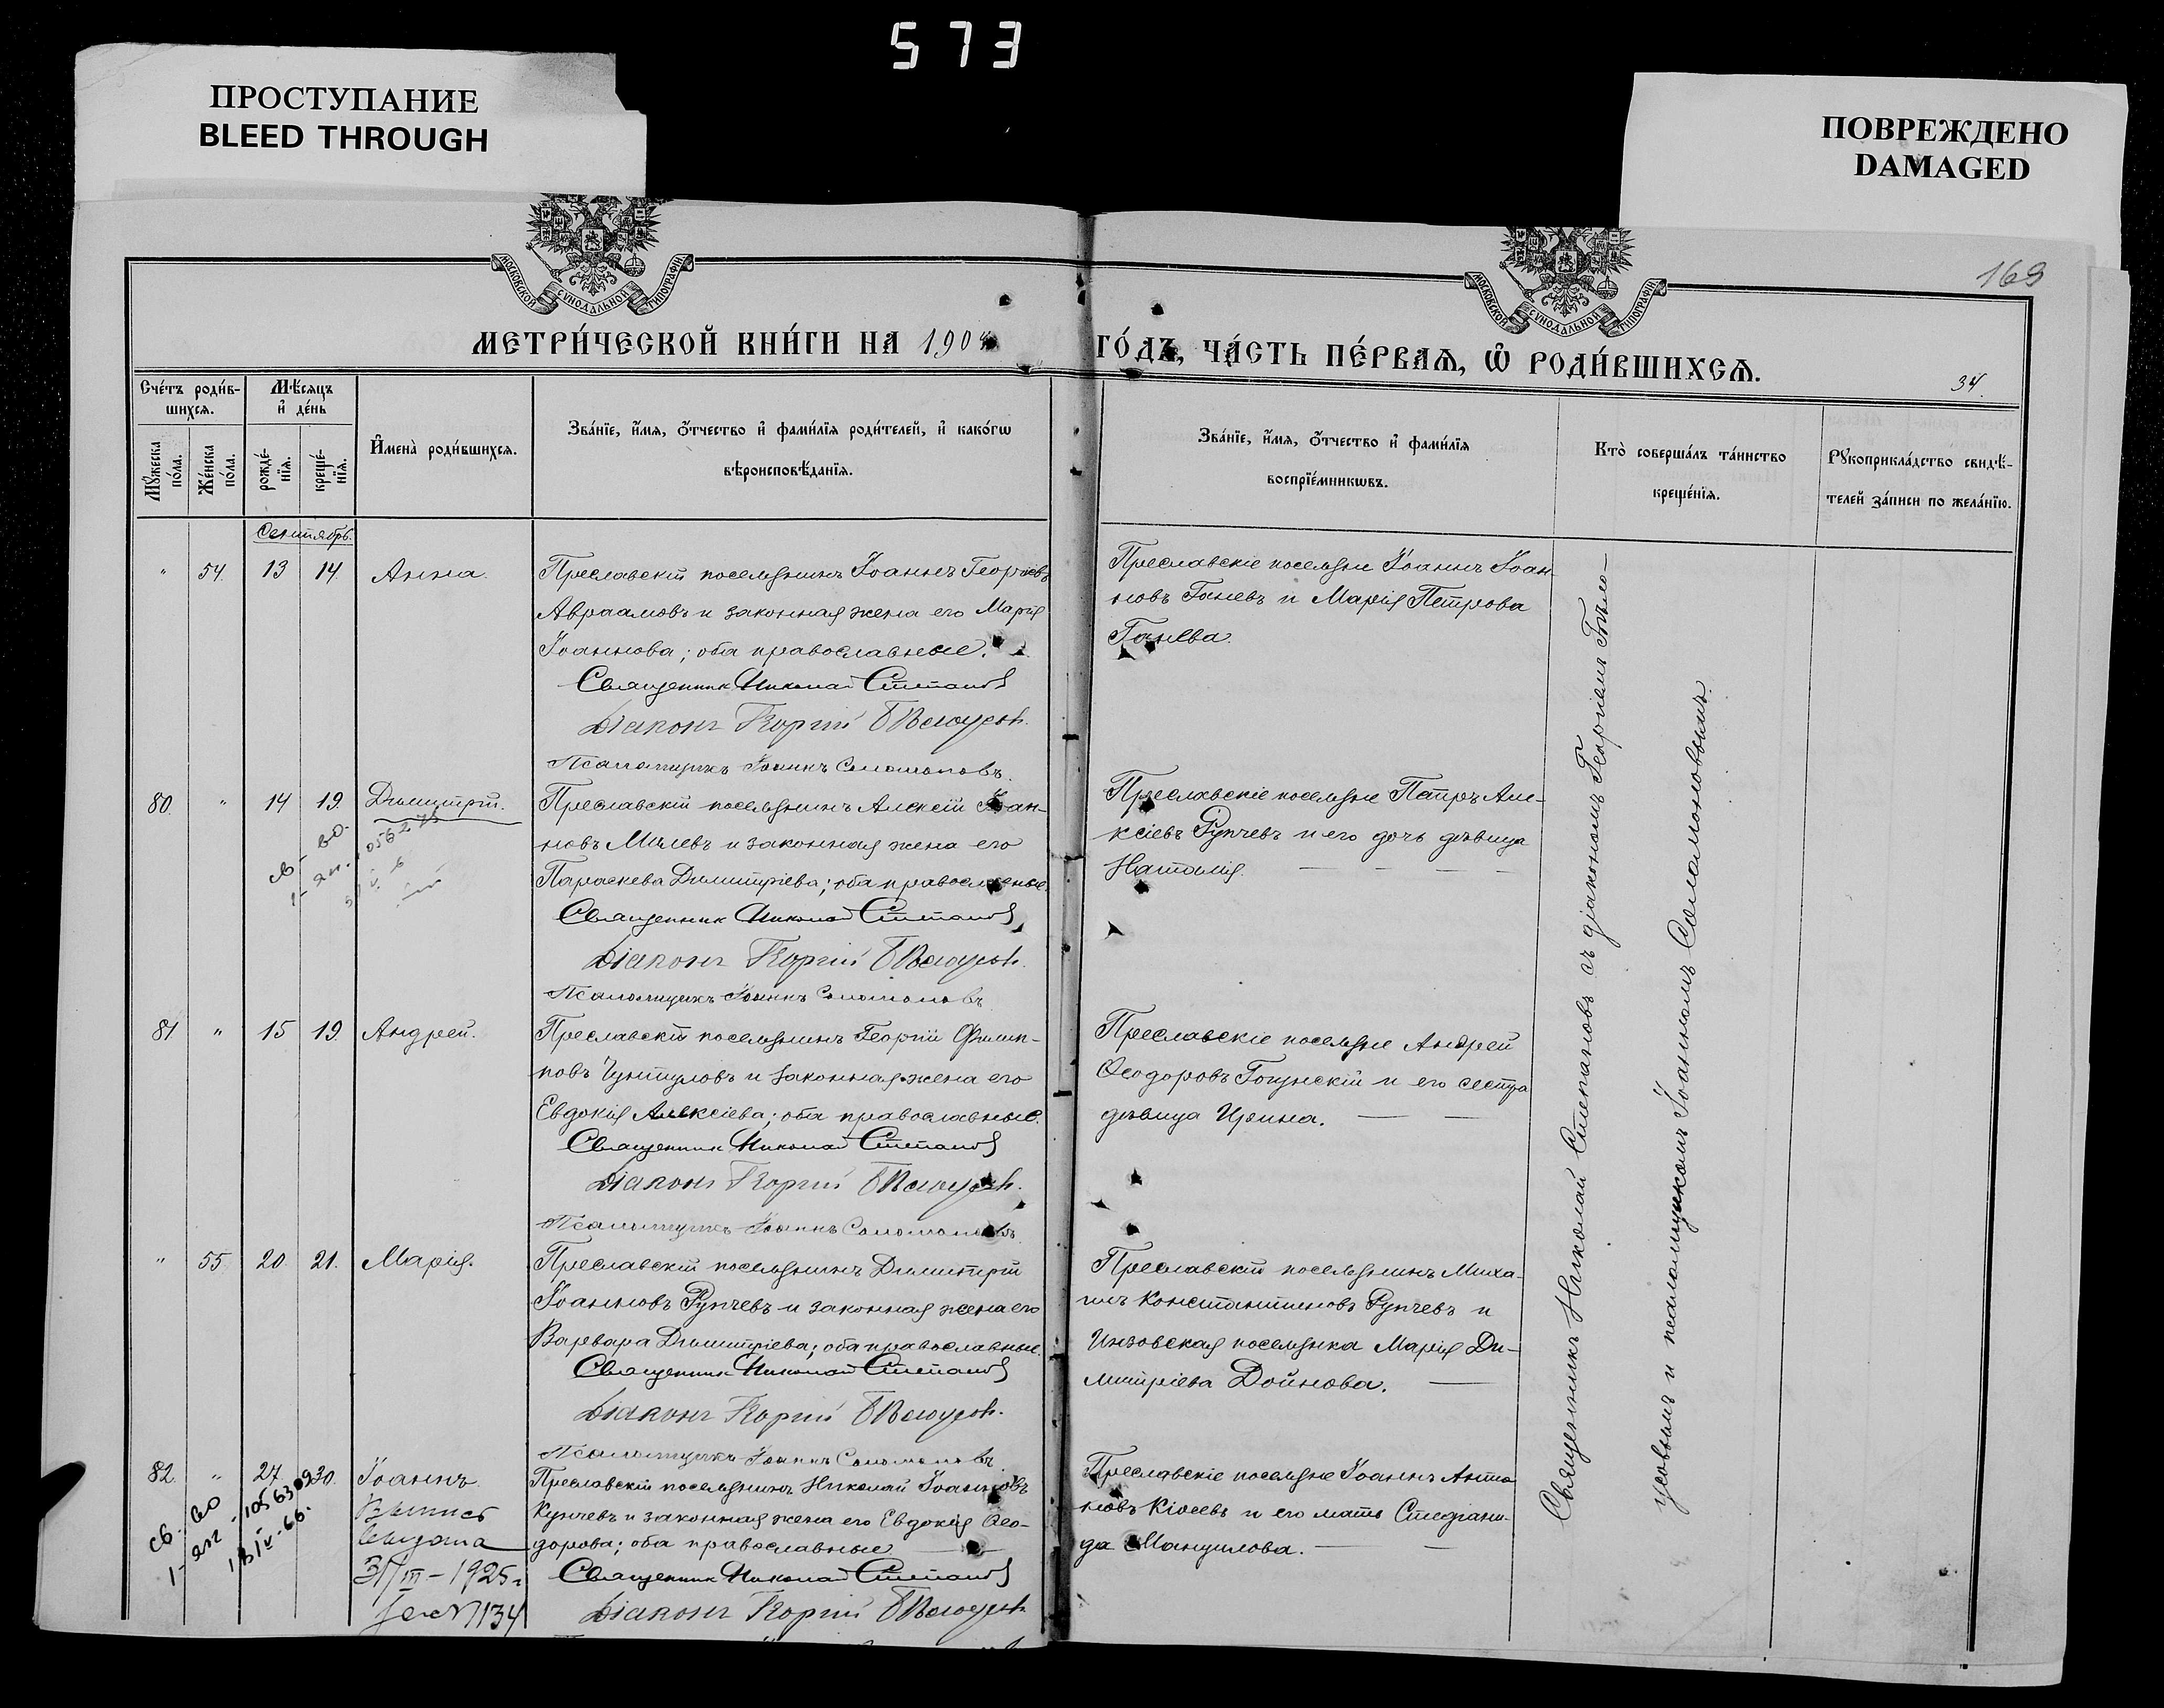 573
ПРОСТУПАНИЕ
BLEED THROUGH
ПОВРЕЖДЕНО
DAMAGED
МОСКОВСКОЙ СѴНОДАЛЬНОЙ ТИПОГРАФІИ
МОСКОВСКОЙ СѴНОДАЛЬНОЙ ТИПОГРАФІИ
169
МЕТРИ́ЧЕСКОЙ КНИ́ГИ НА 1904
ГО́ДЪ, ЧА́СТЬ ПЕ́РВАѦ, Ѡ҆ РОДИ́ВШИХСѦ.
34.
Сче́тъ роди́в-
шихсѧ.
Мꙋ́жеска по́ла.
Же́нска по́ла.
Мѣ́сѧцъ
и҆ де́нь
рожде́-
нїѧ.
креще́-
нїѧ.
И҆мена̀ роди́вшихсѧ.
Зва́нїе, и҆́мѧ, ѻ҆́тчество и҆ фами́лїѧ роди́телей, и҆ како́гѡ
вѣроисповѣ́данїѧ.
Зва́нїе, и҆́мѧ, ѻ҆́тчество и҆ фами́лїѧ
воспрїе́мникѡвъ.
Кто̀ соверша́лъ та́инство
креще́нїѧ.
Рꙋкоприкла́дство свидѣ́-
телей за́писи по жела́нїю.
Сентябрь.
" 54. 13 14. Анна.
Преславскій поселянинъ Іоаннъ Георгіевъ
Авраамовъ и законная жена его Марія
Іоаннова; оба православные.
Священник Николай Степановъ
Діаконъ Георгій Бѣлоусовъ.
Псаломщикъ Іоаннъ Соломоновъ.
Преславскіе поселяне Іоаннъ Іоан-
новъ Ганевъ и Марія Петрова
Ганева.
80. " 14 19. Димитрій.
св-во
Преславскій поселянинъ Алексій Іоан-
новъ Милевъ и законная жена его
Параскева Димитріева; оба православные.
Священник Николай Степановъ
Діаконъ Георгій Бѣлоусовъ.
Псаломщикъ Іоаннъ Соломоновъ
Преславскіе поселяне Петръ Але-
ксіевъ Рупчевъ и его дочь дѣвица
Наталія.
81 " 15 19. Андрей.
Преславскій поселянинъ Георгій Филип-
повъ Чунтуловъ и законная жена его
Евдокія Алексіева; оба православные.
Священник Николай Степановъ
Діаконъ Георгій Бѣлоусовъ.
Псаломщикъ Іоаннъ Соломоновъ
Преславскіе поселяне Андрей
Ѳеодоровъ Гоцунскій и его сестра
дѣвица Ирина.
" 55 20 21. Марія.
Преславскій поселянинъ Димитрій
Іоанновъ Рупчевъ и законная жена его
Варвара Димитріева; оба православные.
Священник Николай Степановъ
Діаконъ Георгій Бѣлоусовъ.
Псаломщикъ Іоаннъ Соломоновъ
Преславскій поселянинъ Миха-
илъ Константиновъ Рупчевъ и
Инзовская поселянка Марія Ди-
митріева Дойнова.
82. " 27 30. Іоаннъ.
св-во
Выпись
выдана
31/III-1925г
N 134
Преславскій поселянинъ Николай Іоанновъ
Купчевъ и законная жена его Евдокія Ѳео-
дорова; оба православные
Священник Николай Степановъ
Діаконъ Георгій Бѣлоусовъ
Преславскіе поселяне Іоаннъ Анто
новъ Кіосевъ и его мать Стефани-
да Мануилова.
Священникъ Николай Степановъ съ діакономъ Георгіемъ Бѣло-
усовымъ и псаломщикомъ Іоанномъ Соломоновымъ.